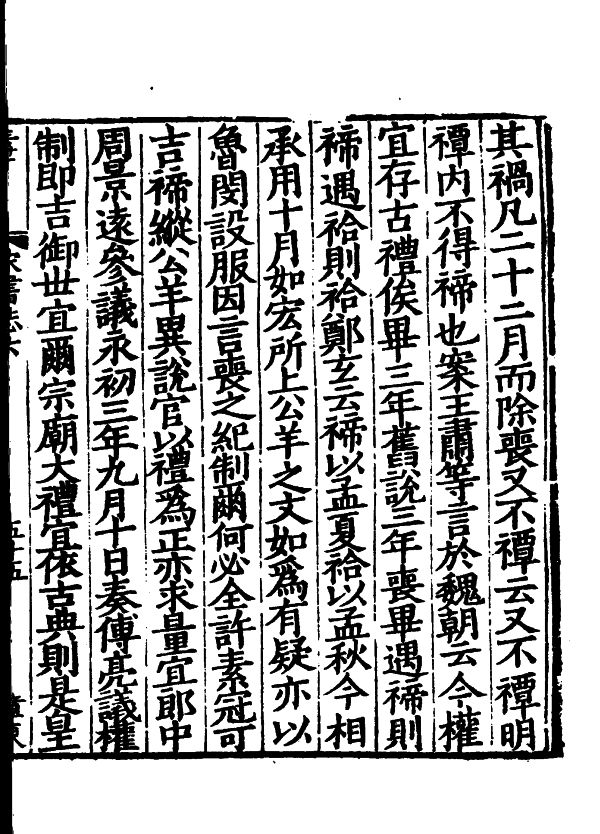 其禍凡二十二月而除喪又不禫云又不禫明
禫內不得禘也案王肅等言於魏朝云今權
宜存古禮俟畢三年舊說三年喪畢遇禘則
禘遇祫則祫鄭玄云禘以孟夏祫以孟秋今相
承用十月如宏所上公羊之文如為有疑亦以
魯閔設服因言喪之紀制爾何必全許素冠可
吉禘縱公羊異說官以禮為正亦求量宜郎中
周景遠參議永初三年九月十日奏傅亮議權
制即吉御世宜爾宗廟大禮宜依古典則是皇
宋書志六
五十五